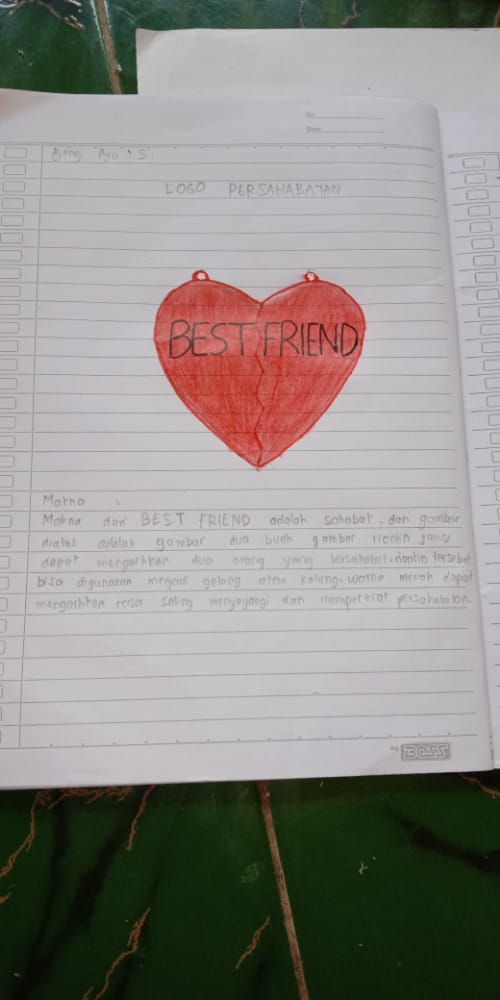 No
Date
Ajeng Ayu S
LOGO PERSAHABATAN
BEST FRIEND
Makna :
Makna dari BEST FRIEND adalah sahabat, dan gambar
diatas adalah gambar dua buah gambar liontin yang
dapat mengartikan dua orang yang bersahabat. liontin tersebut
bisa digunakan menjadi gelang atau kalung. warna merah dapat
mengartikan rasa saling menyayangi dan mempererat persahabatan.
BOSS